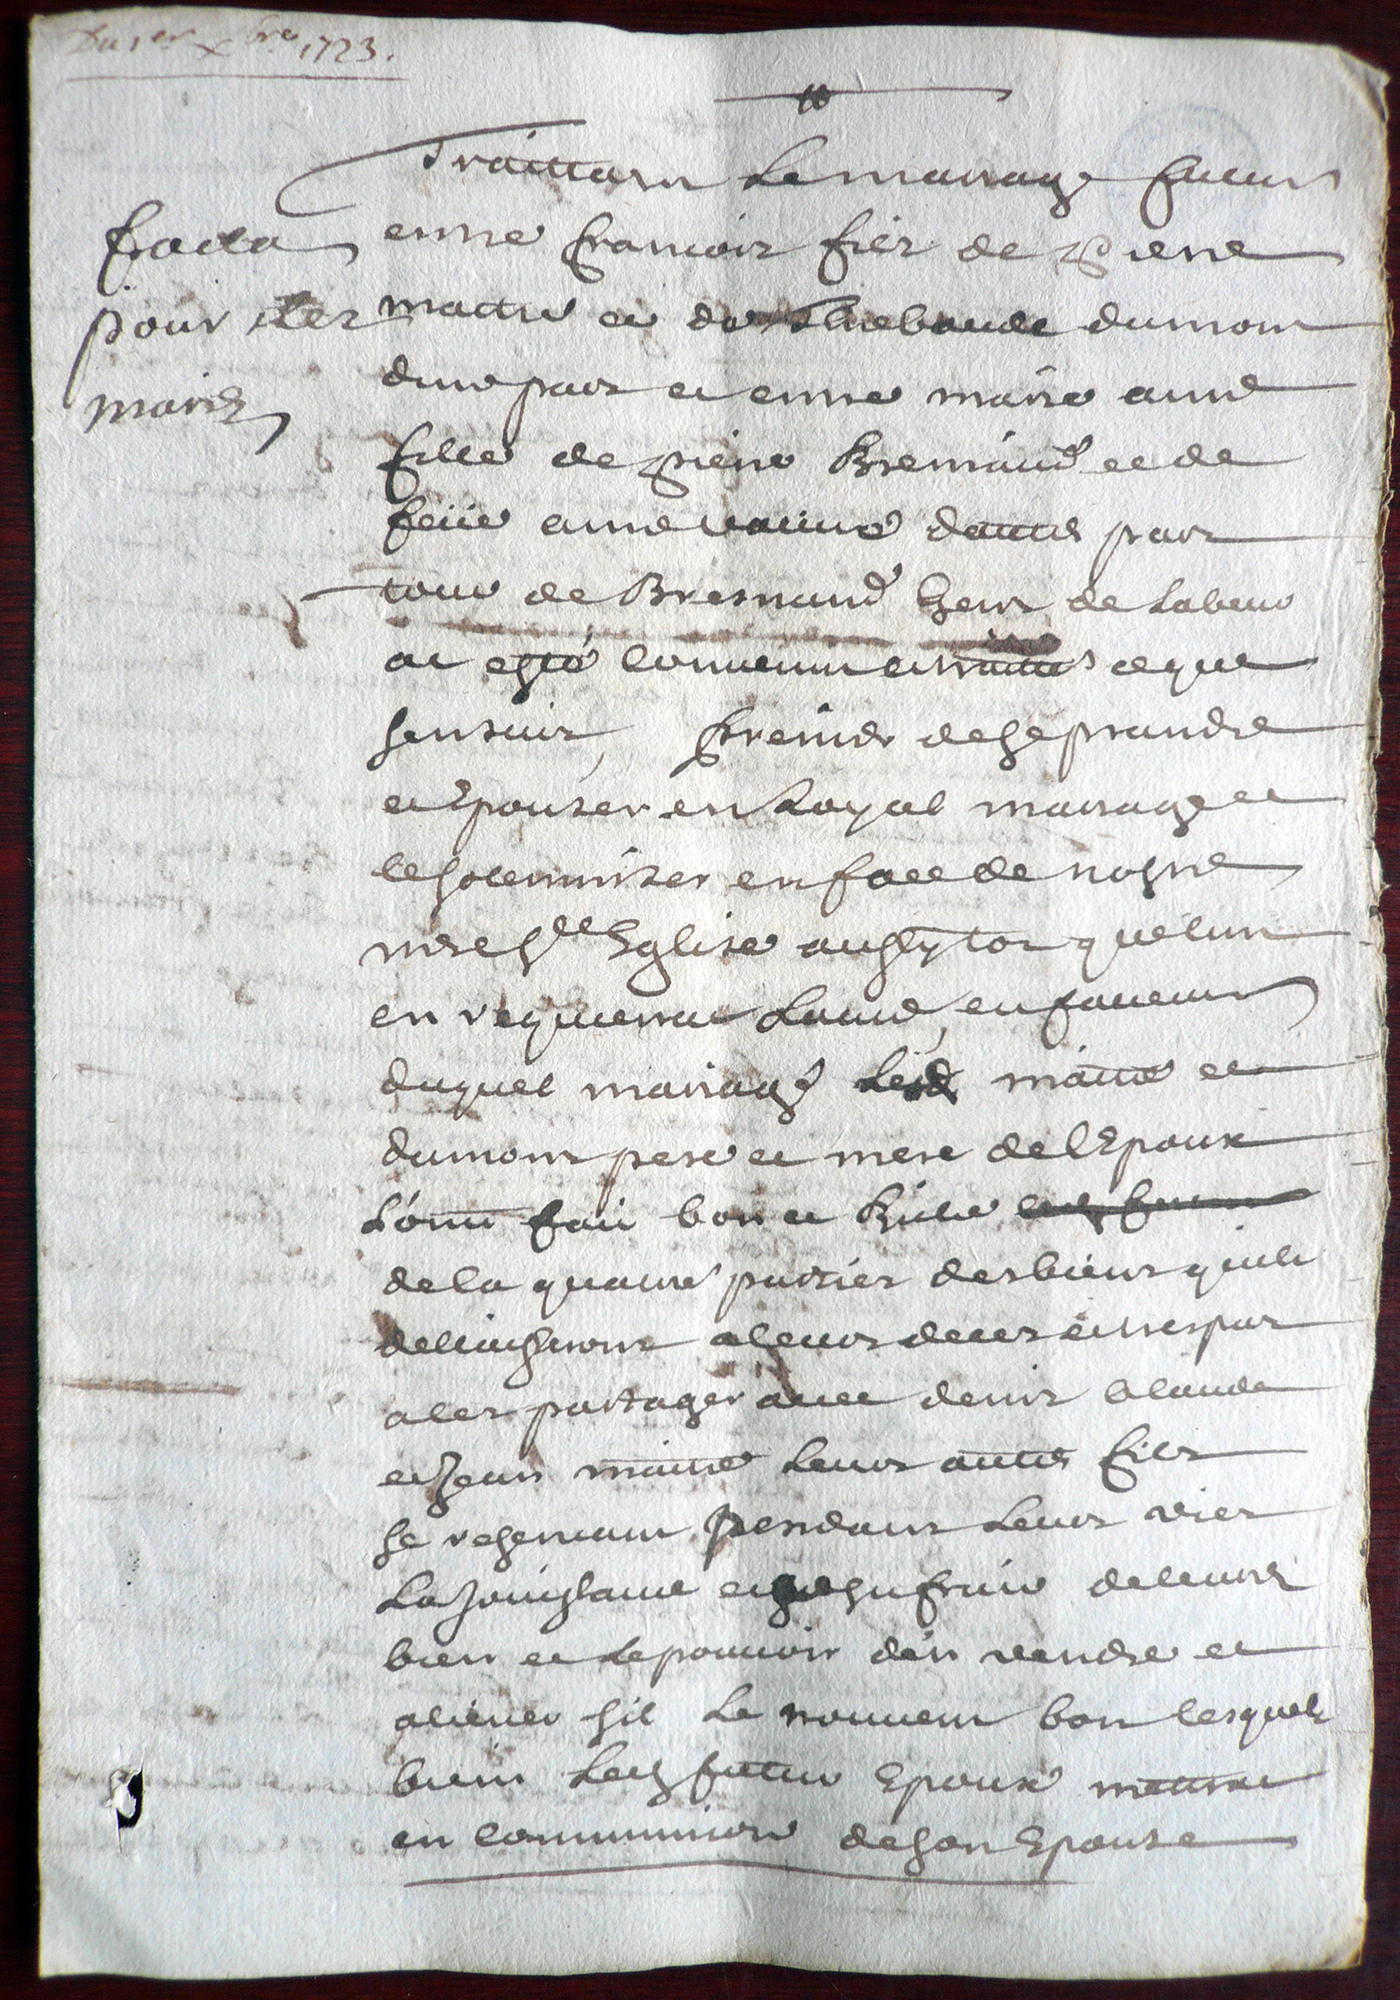 Du 1er Xbre 1723.
Traittant Le mariage futur
tracta
pour les
mariés
entre francois filz de Pierre
maitre et de Thiebaude dumont
dune part et entre marie anne
fille de pierre Bremand et de
feüe anne dautre part
tous de Bresnand gens de Labeur
at esté convenu et traitté ce que
sensuit, preindr de se prandre
et Epouser en Loyal mariage et
le solemniser en face de nostre
mre ste Eglise aussytot quelun
en requerrat Lautre, en faveur
duquel mariage Lesd maitre et
dumont pere et mere de l'Epoux
L'ont fait bon et Riche
de la quatre parties des biens quils
delaisseront a leurs deces et trespas
ales partager avec denis claude
et Jean maitre Leurs autres filz
se reservant pendant Leurs vies
La Jouissance et usufruit de leurs
bien et Le pouvoir d'en vendre et
aliener sil Le trouvent bon lesquels
biens Led futur Epoux mettrat
en communion de son Epouse